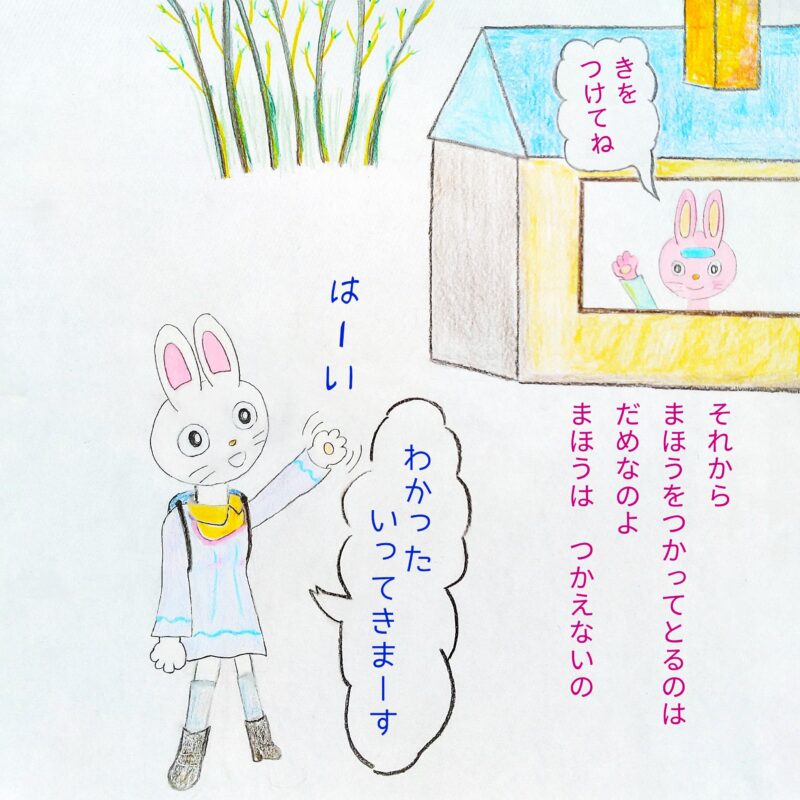 きを
つけてね
はーい
それから
まほうをつかってとるのは
だめなのよ
まほうは　つかえないの
わかった
いってきまーす